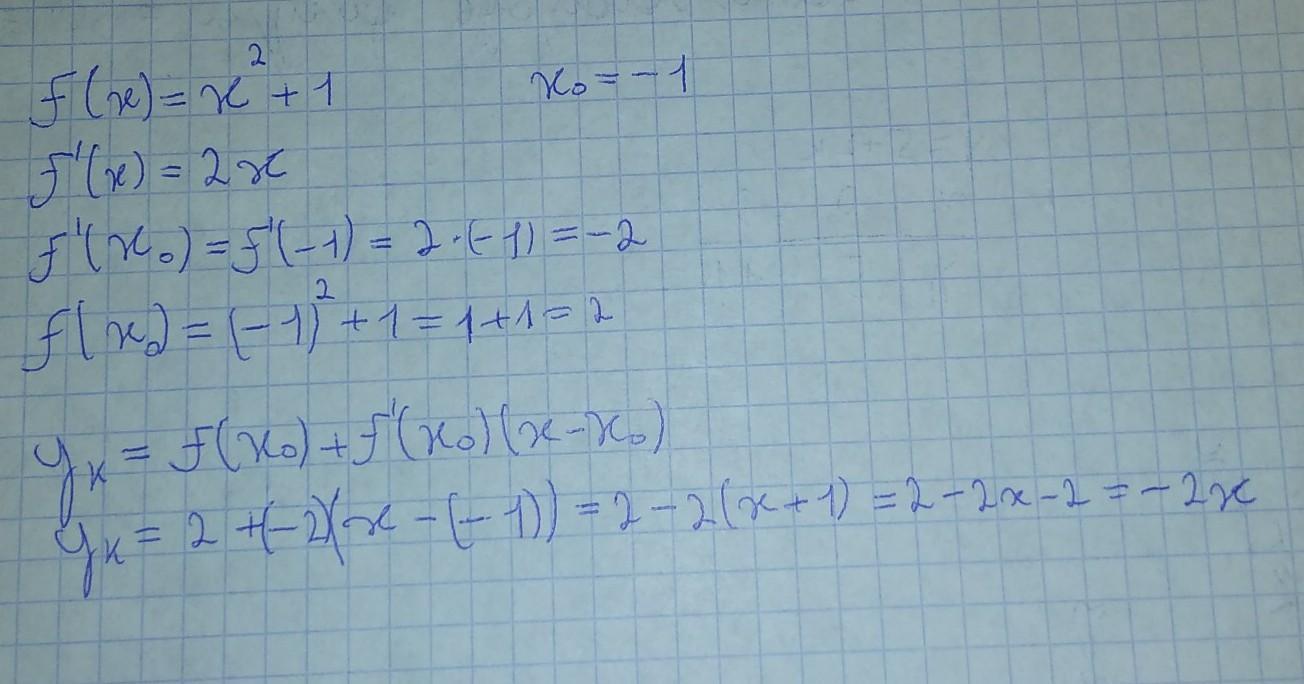 f(x) = x² + 1 x₀ = -1
f'(x) = 2x
f'(x₀) = f'(-1) = 2·(-1) = -2
f(x₀) = (-1)² + 1 = 1+1 = 2
yₖ = f(x₀) + f'(x₀)(x-x₀)
yₖ = 2 +(-2)(x - (-1)) = 2 - 2(x+1) = 2 - 2x - 2 = -2x